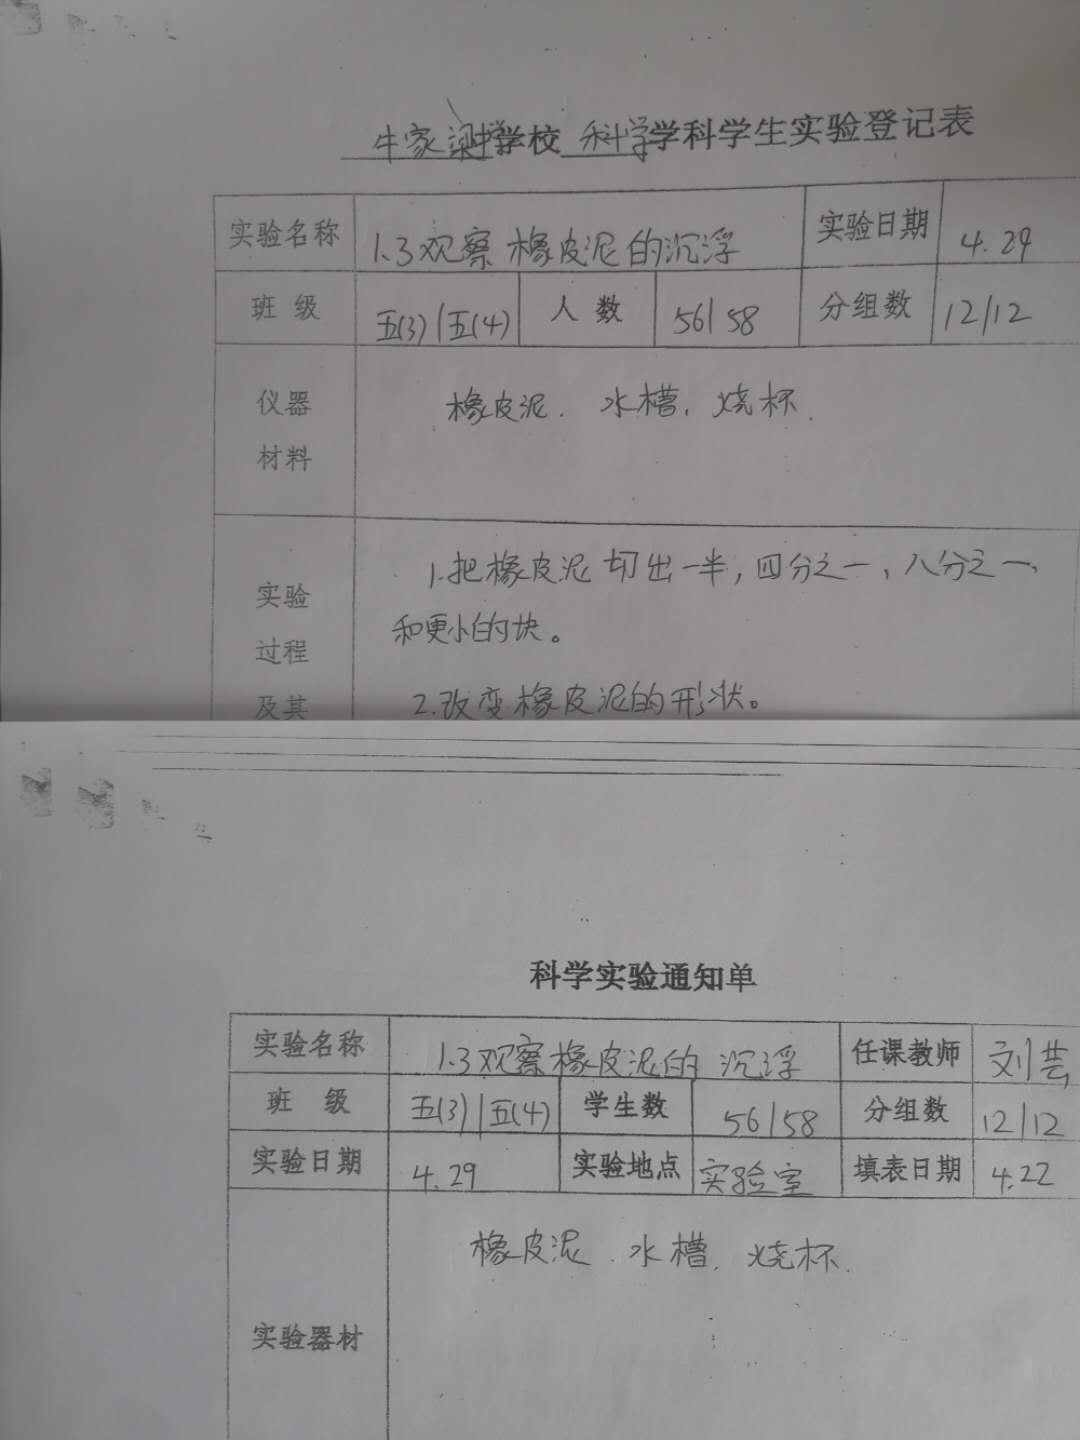 牛家梁学校 科学学科学生实验登记表
实验名称 1.3观察橡皮泥的沉浮 实验日期 4.29
班 级 五(3)/五(4) 人 数 56/58 分组数 12/12
仪器 橡皮泥. 水槽. 烧杯.
材料
1.把橡皮泥切出一半,四分之一,八分之一,
实验
和更小的块。
过程
及其 2.改变橡皮泥的形状。
科学实验通知单
实验名称 1.3观察橡皮泥的沉浮 任课教师 刘芸
班 级 五(3)/五(4) 学生数 56/58 分组数 12/12
实验日期 4.29 实验地点 实验室 填表日期 4.22
橡皮泥. 水槽. 烧杯.
实验器材